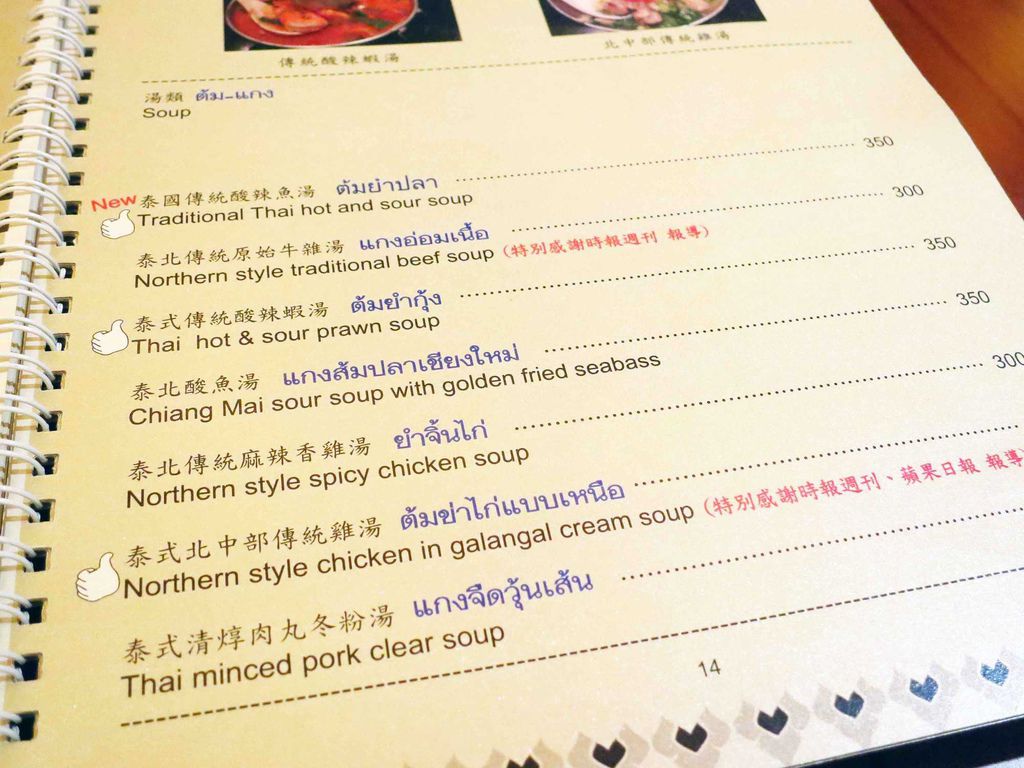 傳統酸辣蝦湯
北中部傳統雞湯
湯類 ต้ม-แกง
Soup
New 泰國傳統酸辣魚湯 ต้มยำปลา 350
Traditional Thai hot and sour soup
泰北傳統原始牛雜湯 แกงอ่อมเนื้อ 300
Northern style traditional beef soup (特別感謝時報週刊 報導)
泰式傳統酸辣蝦湯 ต้มยำกุ้ง 350
Thai hot & sour prawn soup
泰北酸魚湯 แกงส้มปลาเชียงใหม่ 350
Chiang Mai sour soup with golden fried seabass
泰北傳統麻辣香雞湯 ยำจิ้นไก่ 300
Northern style spicy chicken soup
泰式北中部傳統雞湯 ต้มข่าไก่แบบเหนือ
Northern style chicken in galangal cream soup (特別感謝時報週刊、蘋果日報 報導
泰式清焞肉丸冬粉湯 แกงจืดวุ้นเส้น
Thai minced pork clear soup
14